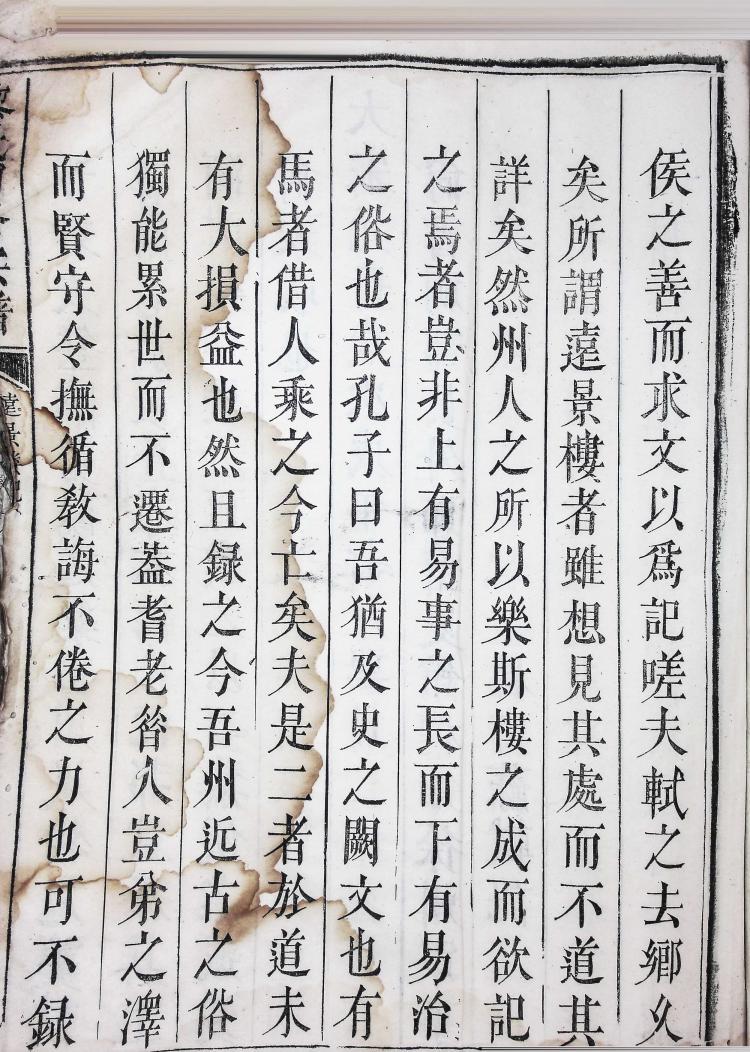 侯之善而求文以爲記嗟夫軾之去鄉久
矣所謂遠景樓者雖想見其處而不道其
詳矣然州人之所以樂斯樓之成而欲記
之焉者豈非上有易事之長而下有易治
之俗也哉孔子曰吾猶及史之闕文也有
馬者借人乘之今亡矣夫是二者於道未
有大損益也然且録之今吾州近古之俗
獨能累世而不遷葢耆老昝人豈弟之澤
而賢守令撫循敎誨不倦之力也可不録
遠景